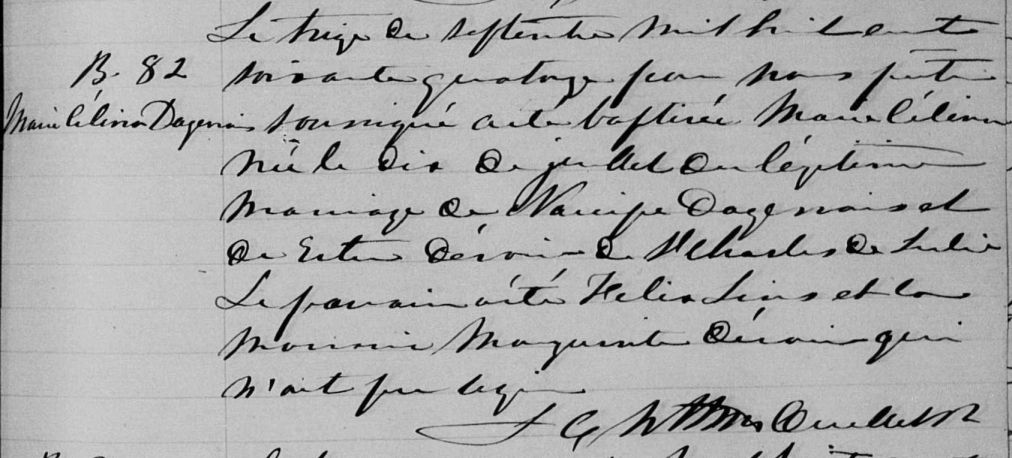 Le treize de septembre mil huit cent
B. 82 soixante quatorze par nous prêtre
Marie Célina Dagenais soussigné a été baptisée Marie Célina
née le dix de juillet du légitime
mariage de Narcisse Dagenais et
de Ester de St Charles de
Le parrain a été Felix et la
marraine Marguerite qui
n'ont pu signer
Ouellet Ptr